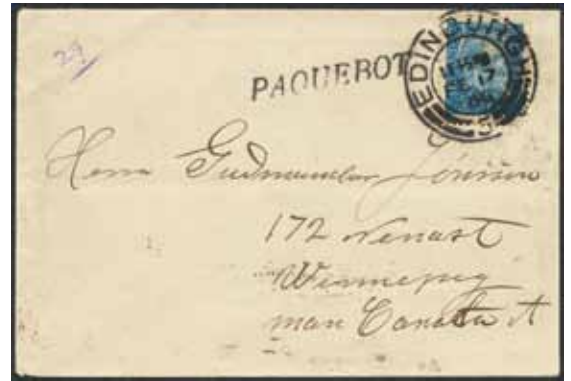 29
PAQUEBOT
EDINBURGH
17
5
Herra Gudmundur Jónsson
172 Nenast
Winnepeg
man Canata A